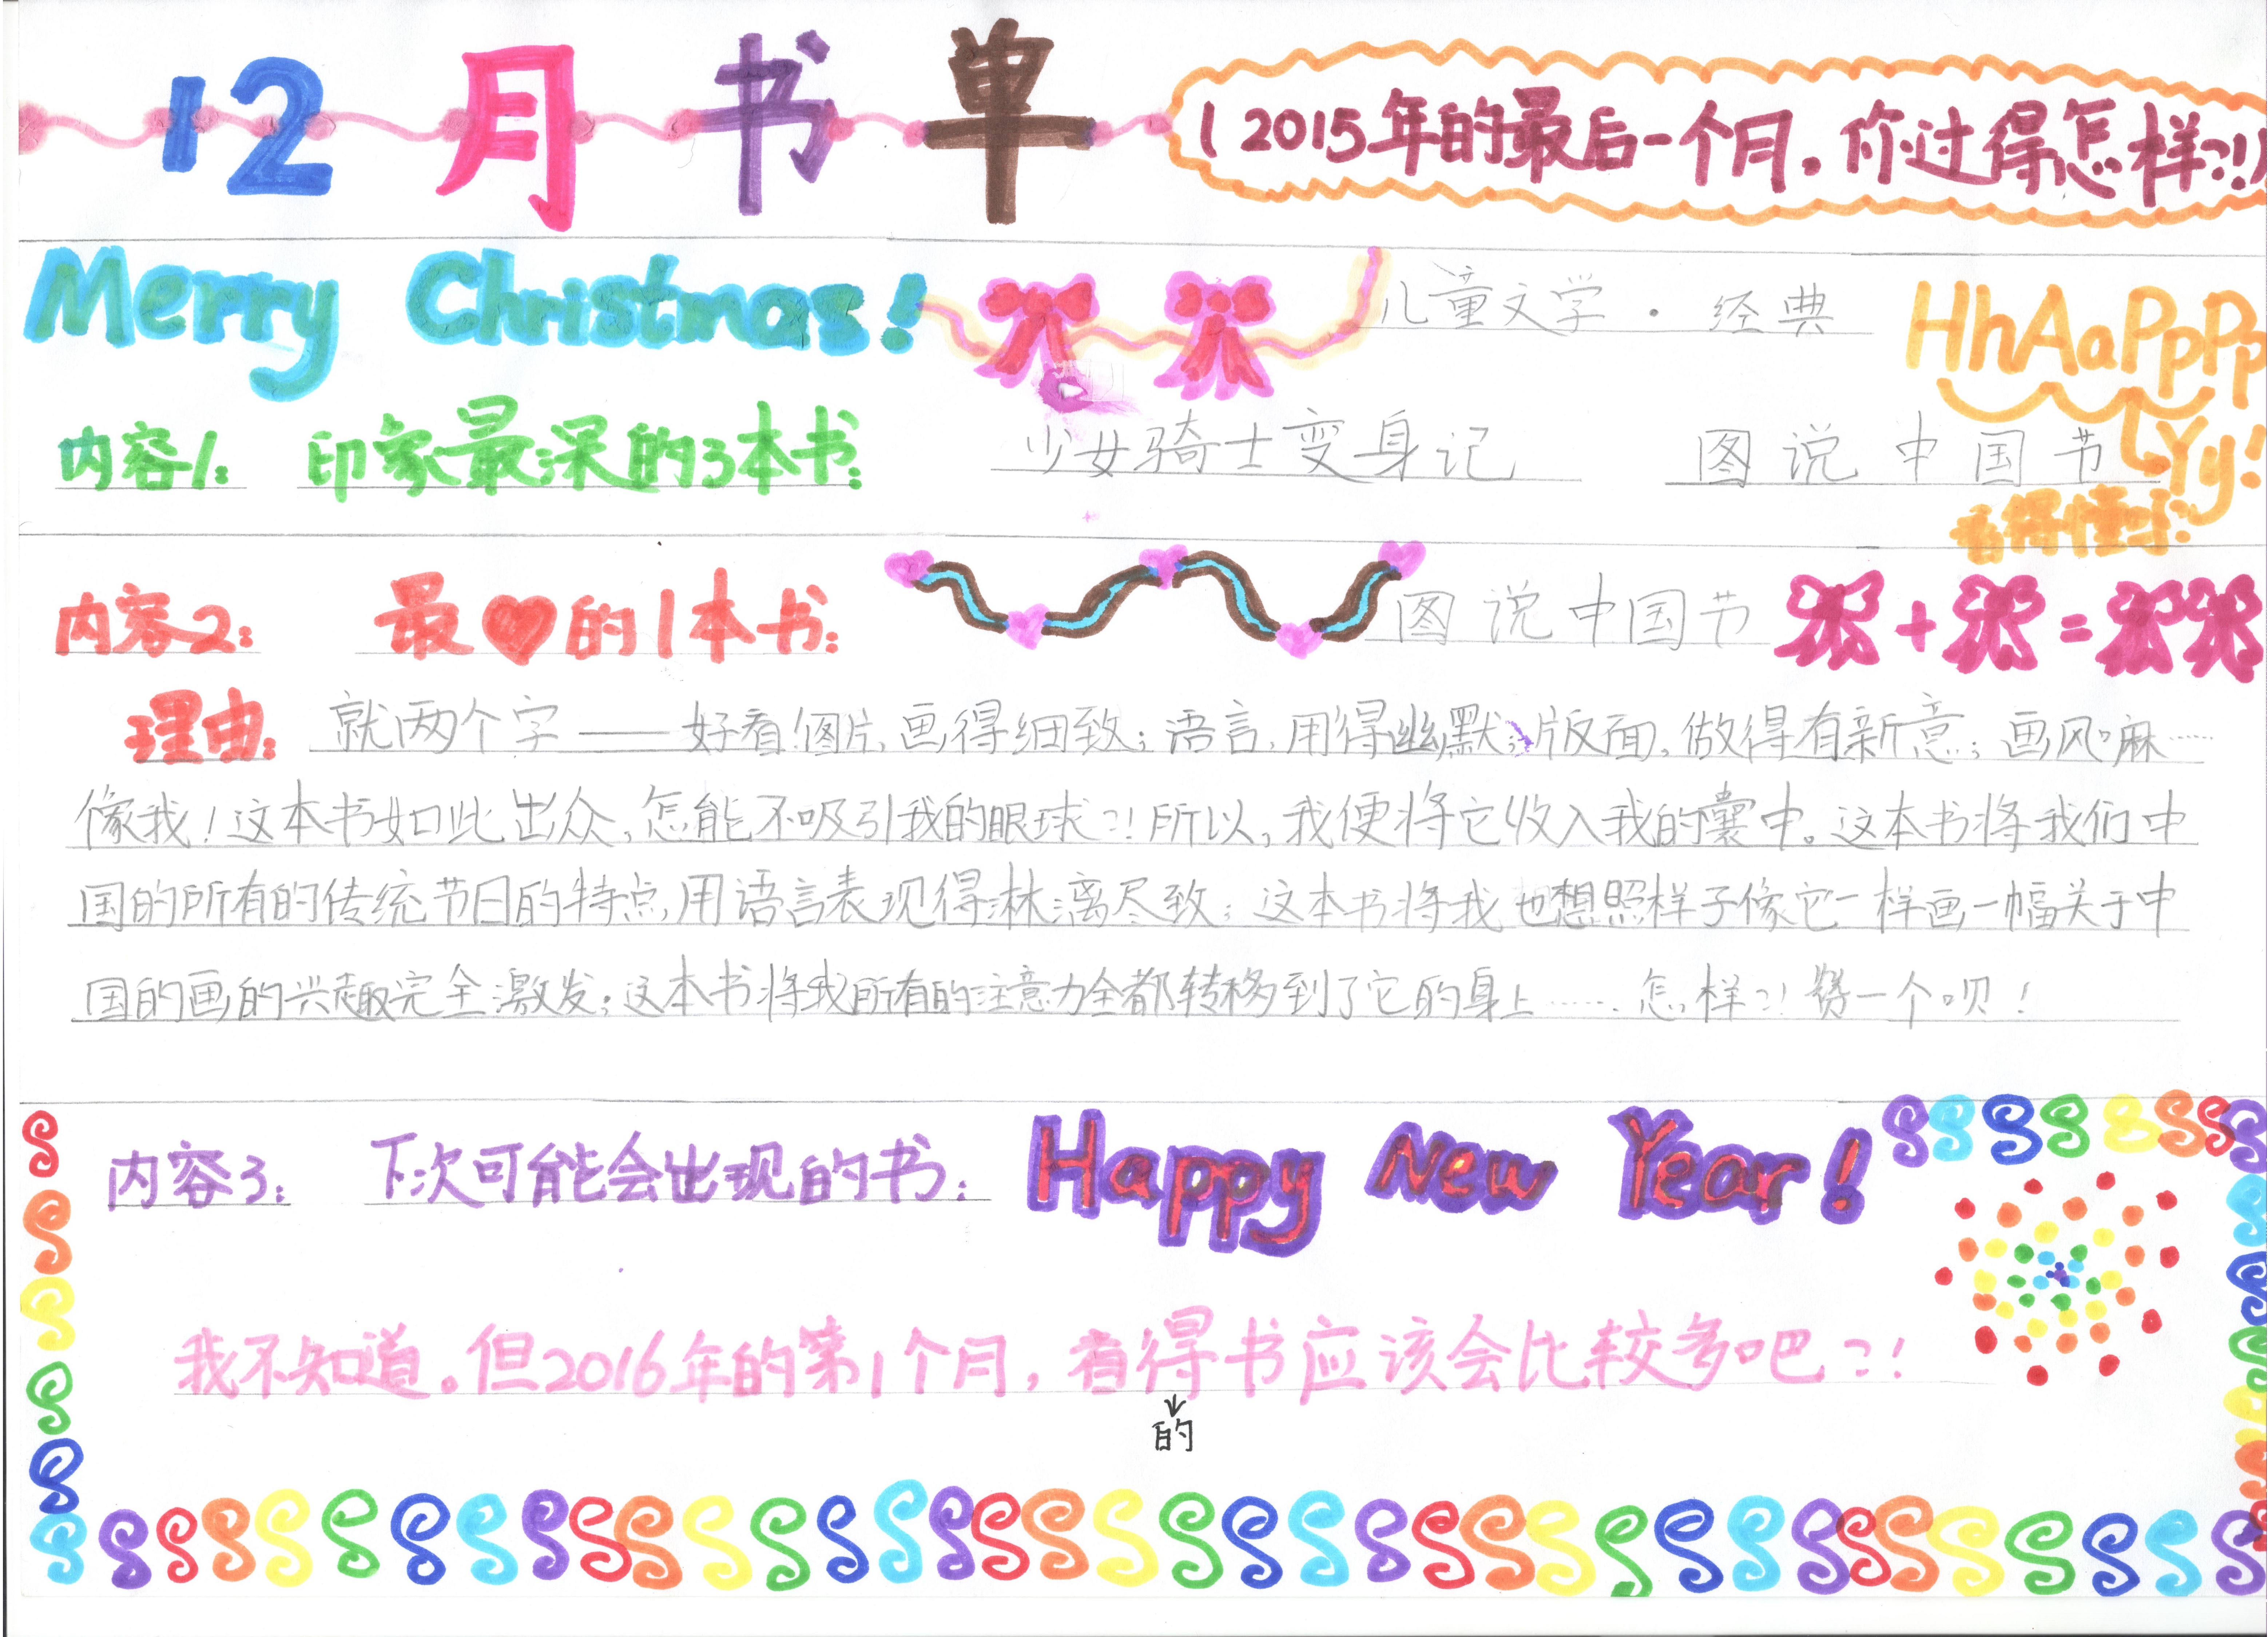 12月书单
(2015年的最后一个月，你过得怎样?!)
Merry Christmas!
儿童文学·经典
HhAaPpPp
Yy!
看得懂吗?
内容1: 印象最深的3本书:
少女骑士变身记
图说中国节
内容2: 最❤的1本书:
图说中国节
+ =
理由: 就两个字——好看!图片,画得细致;语言,用得幽默;版面,做得有新意;画风嘛……
像我!这本书如此出众,怎能不吸引我的眼球?!所以,我便将它收入我的囊中。这本书将我们中
国的所有的传统节日的特点,用语言表现得淋漓尽致;这本书将我也想照样子像它一样画一幅关于中
国的画的兴趣完全激发;这本书将我所有的注意力全都转移到了它的身上……怎样?!赞一个呗!
内容3: 下次可能会出现的书:
Happy New Year!
我不知道。但2016年的第1个月,看得书应该会比较多吧?!
的